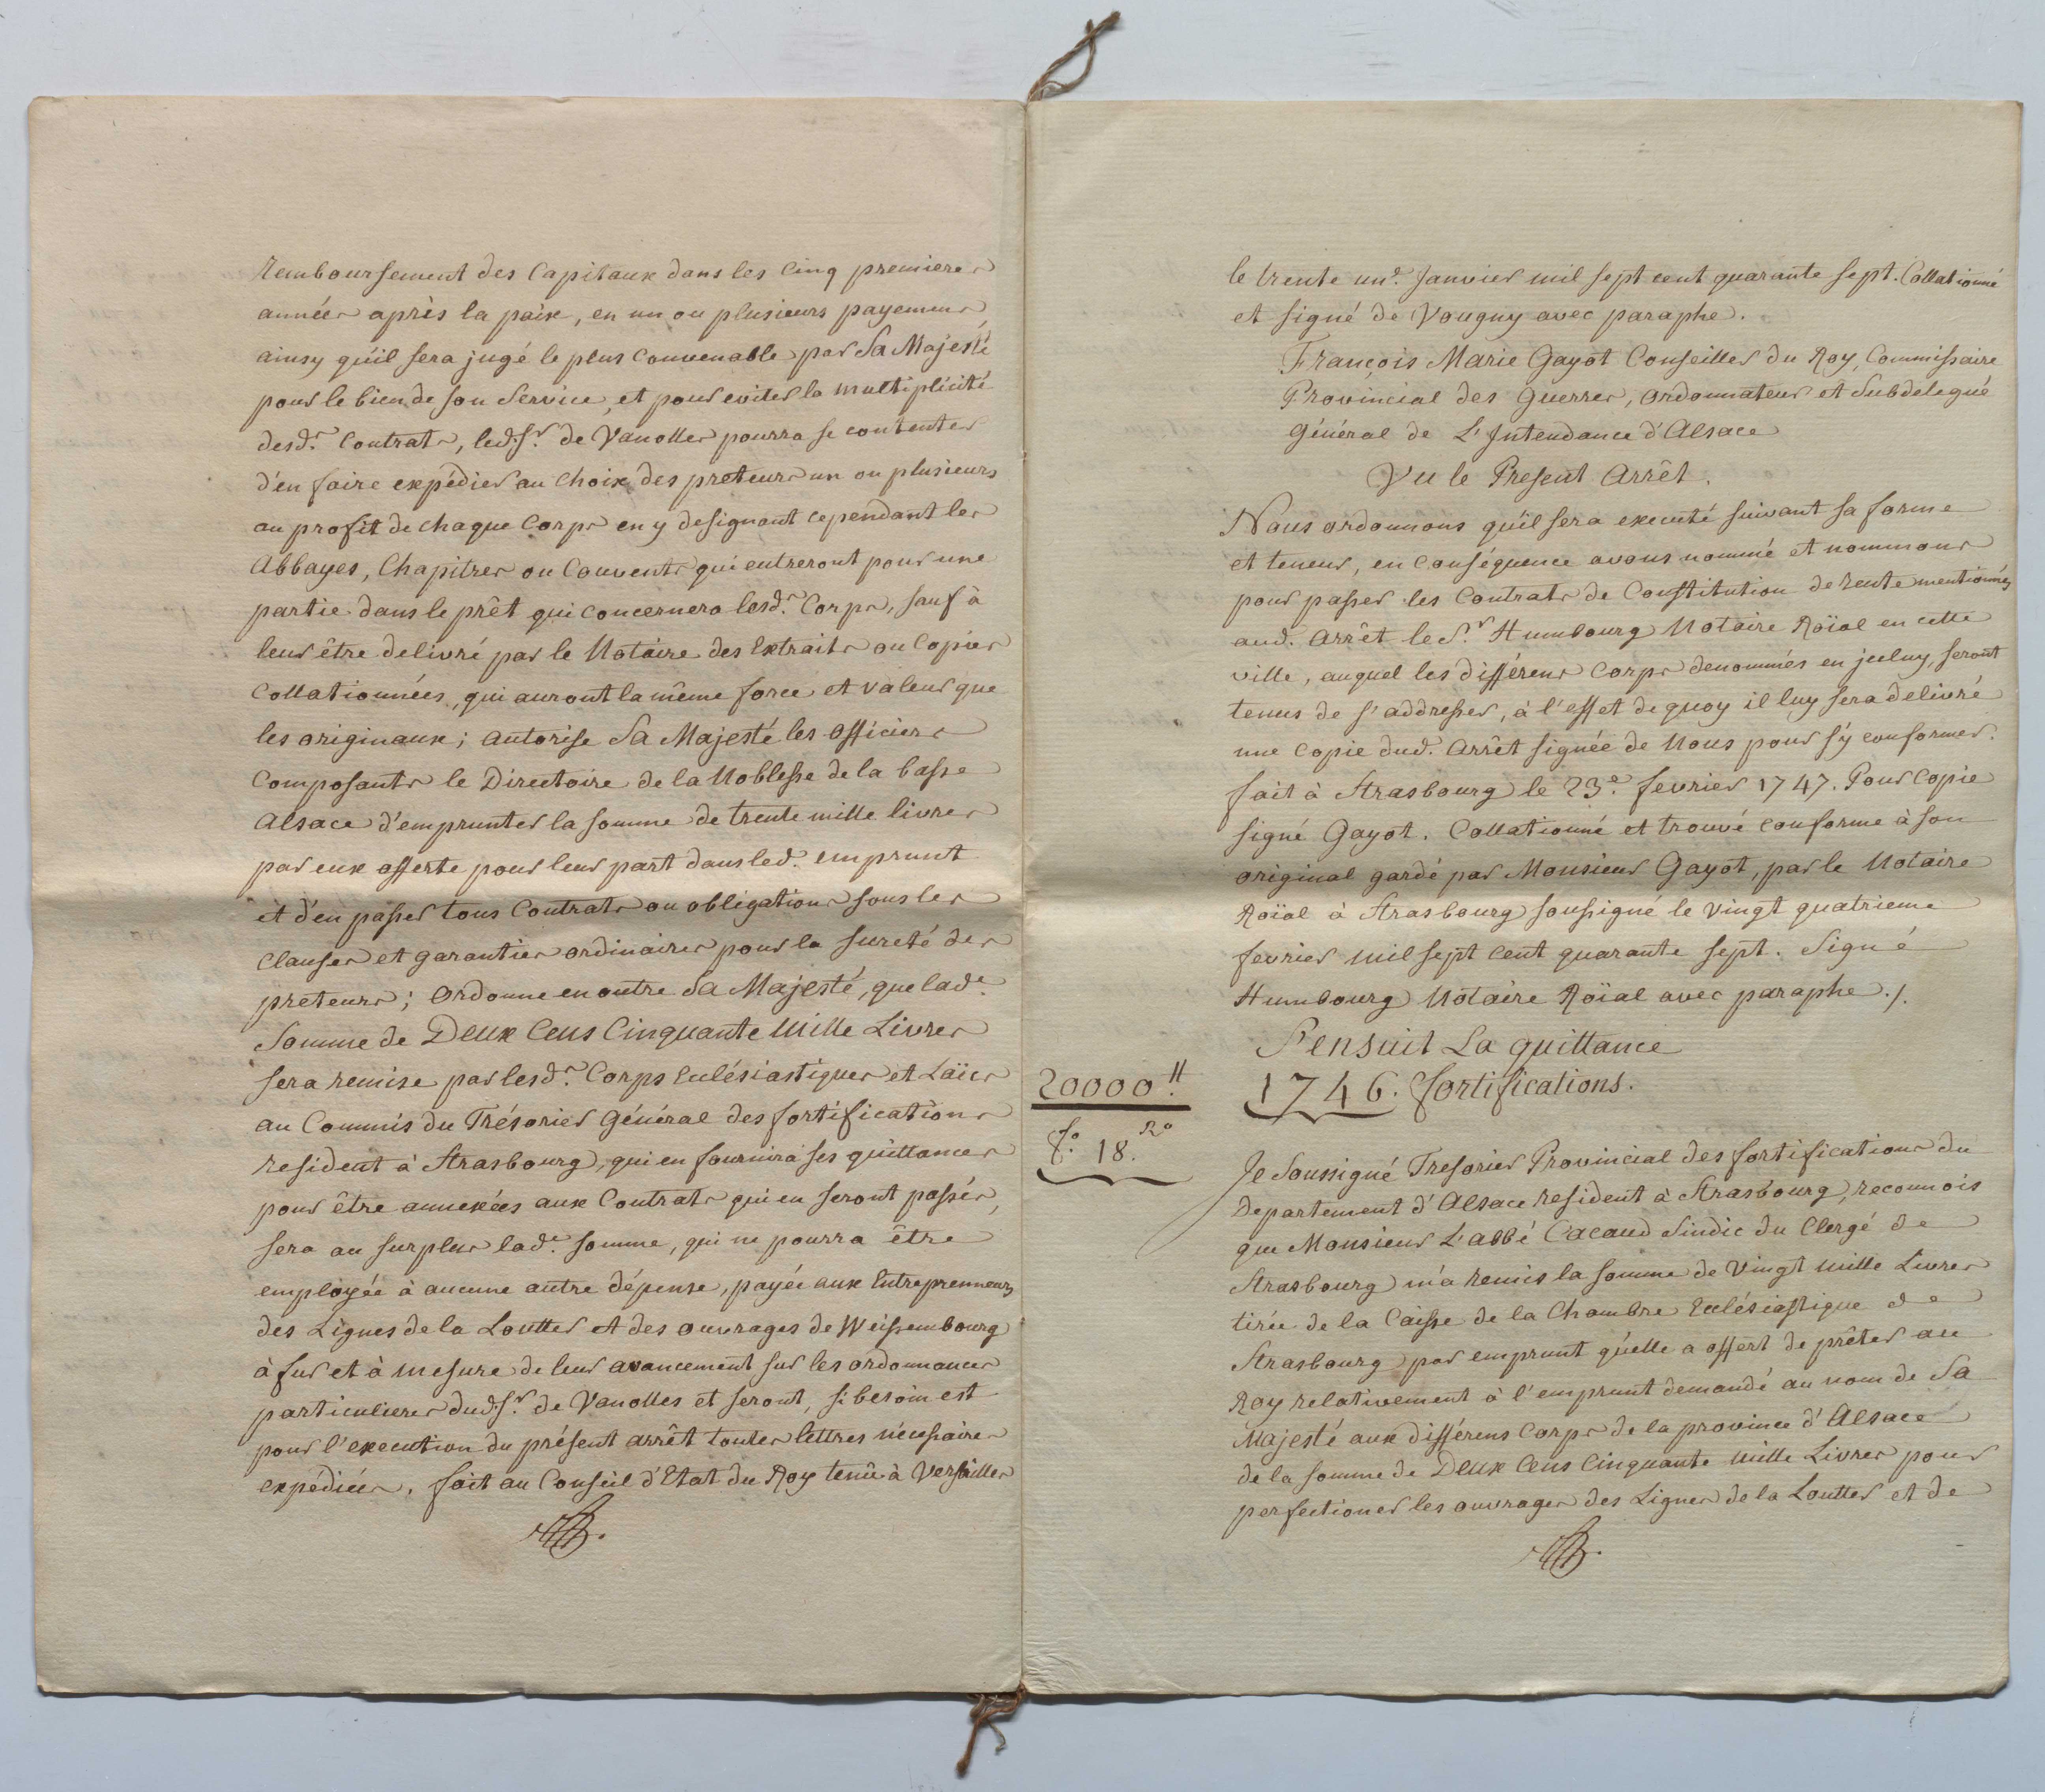 remboursement des Capitaux dans les Cinq premieres
années après la paix, en un ou plusieurs payemens,
ainsy qu'il sera jugé le plus Convenable par Sa Majesté
pour le bien de son Service, et pour eviter la multiplicité
desd.s Contrats, led. S.r de Vanolles pourra se contenter
d'en faire expédier au Choix des preteurs un ou plusieurs
au profit de chaque Corps en y designant cependant les
Abbayes, Chapitres ou Couvents qui entreront pour une
partie dans le prêt qui Concernera lesd.s Corps, sauf à
leur être delivré par le Notaire des Extraits ou Copies
Collationnées, qui auront la même force et valeur que
les originaux; autorise Sa Majesté les officiers
Composants le Directoire de la Noblesse de la basse
Alsace d'emprunter la somme de trente mille livres
par eux offerte pour leur part dans led. emprunt
et d'en passer tous Contrats ou obligations sous les
Clauses et garanties ordinaires pour la sureté des
preteurs; Ordonne en outre Sa Majesté, que lad.e
Somme de Deux Cens Cinquante Mille Livres
sera remise par lesd.s Corps Eclésiastiques et Laïcs
au Commis du Trésorier Général des fortifications
resident à Strasbourg, qui en fournira ses quittances
pour être annexées aux Contrats qui en seront passés,
sera au surplus lad.e somme, qui ne pourra être
employée à aucune autre dépense, payée aux Entreprenneurs
des Lignes de la Loutter et des ouvrages de Weissembourg
à fur et à mesure de leur avancement sur les ordonnances
particulieres dud. S.r de Vanolles et seront, si besoin est
pour l'execution du présent arrêt toutes lettres nécessaires
expédiées. fait au Conseil d'Etat du Roy tenû à Versailles
le trente un.e Janvier mil sept cent quarante sept. Collationné
et signé de Vougny avec paraphe.
François Marie Gayot Conseiller du Roy, Commissaire
Provincial des Guerres, ordonnateur et Subdelegué
général de L'Intendance d'Alsace
Vu le Present Arrêt.
Nous ordonnons qu'il sera executé suivant sa forme
et teneur, en Conséquence avons nommé et nommons
pour passer les Contrats de Constitution de rente mentionnés
aud. Arrêt le S.r Humbourg Notaire Roïal en cette
ville, auquel les différens Corps denommés en jceluy, seront
tenus de s'addresser, à l'effet de quoy il luy sera delivré
une Copie dud. Arrêt signée de Nous pour s'y conformer.
fait à Strasbourg le 23.e fevrier 1747. Pour Copie
signé Gayot. Collationné et trouvé conforme à son
original gardé par Monsieur Gayot, par le Notaire
Roïal à Strasbourg soussigné le vingt quatrieme
fevrier mil sept cent quarante sept. Signé
Humbourg Notaire Roïal avec paraphe ./.
S'ensuit La quittance
20000.ll
1746. fortifications.
f.o 18. R.o
Je Soussigné Tresorier Provincial des fortifications du
Departement d'Alsace resident à Strasbourg, reconnois
que Monsieur L'abbé Cacaud Sindic du Clergé de
Strasbourg m'a remis la somme de Vingt Mille Livres
tirée de la Caisse de la Chambre Ecclésiastique de
Strasbourg par emprunt qu'elle a offert de prêter au
Roy relativement à l'emprunt demandé au nom de Sa
Majesté aux différens Corps de la province d'Alsace
de la somme de Deux Cens Cinquante Mille Livres pour
perfectioner les ouvrages des Lignes de la Loutter et de